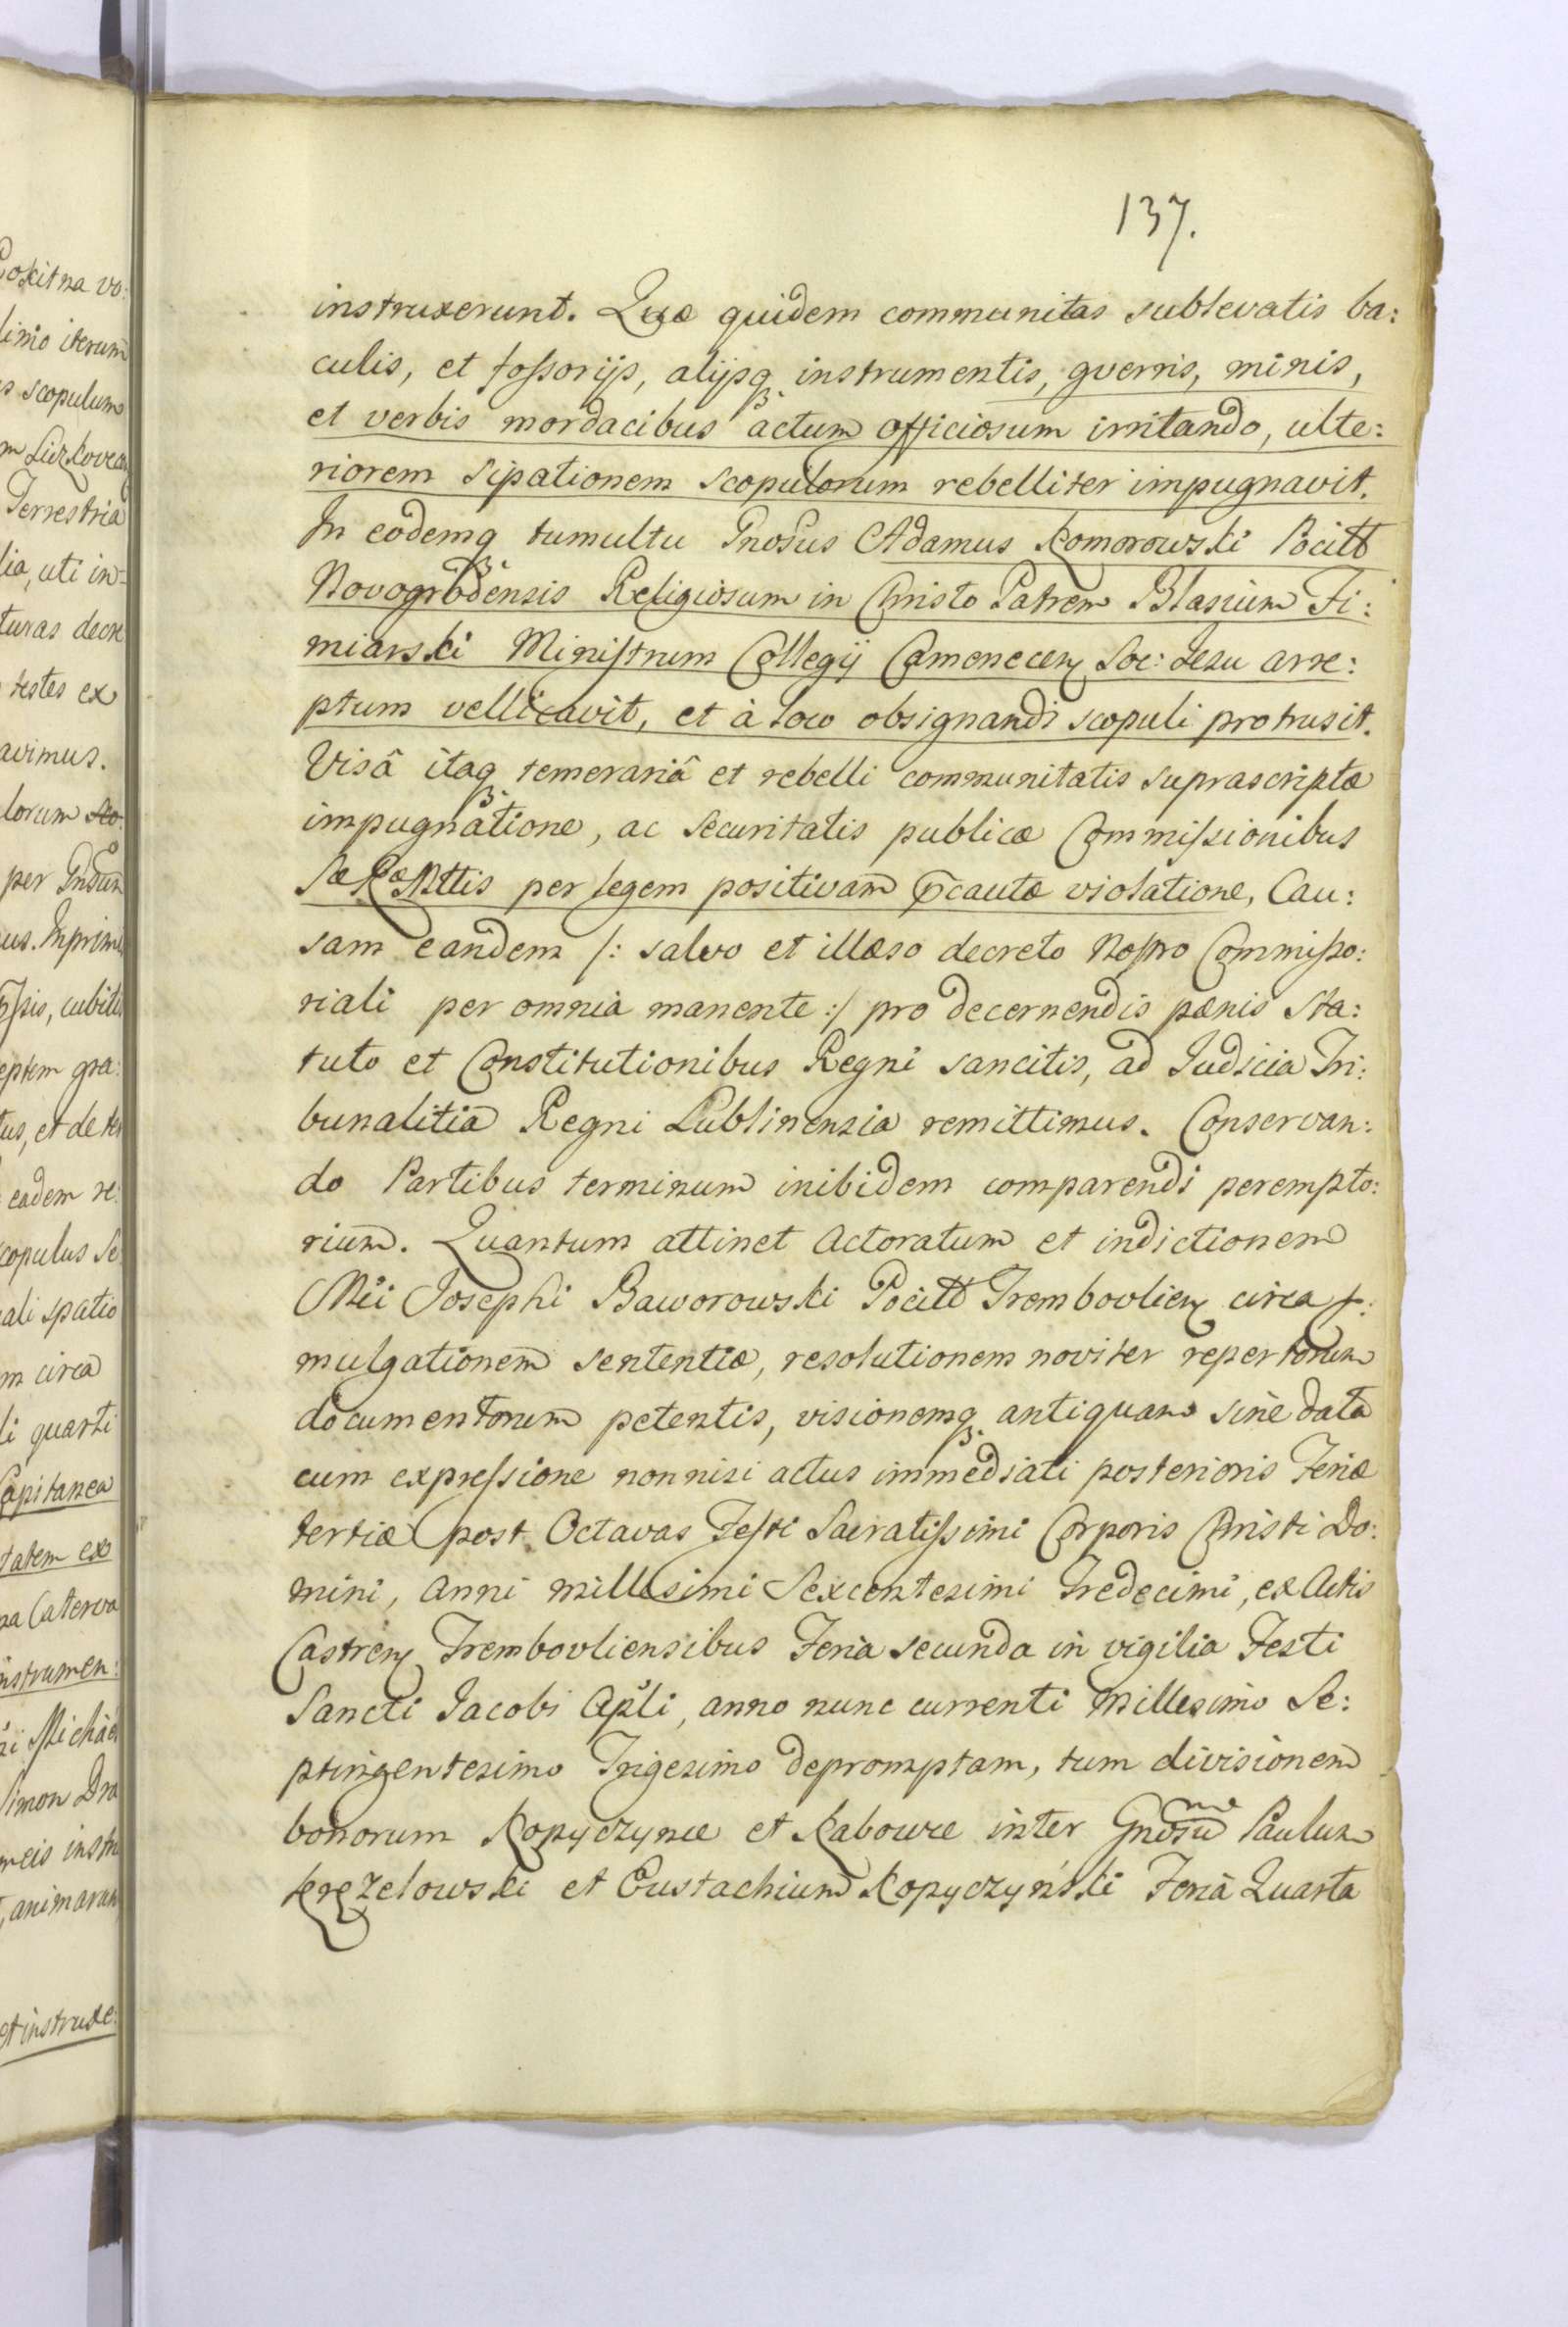 137.
instruxerunt. Quæ quidem communitas sublevatis ba:
culis, et fossorijs, alijsq; instrumentis, gverris, minis,
et verbis mordacibus actum officiosum irritando, ulte:
riorem sipationem scopulorum rebelliter impugnavit.
In eodemq; tumultu Gnosus Adamus Komorowski Pocill
Novogrodensis Religiosum in Christo Patrem Blasium Fi:
miarski Ministrum Collegij Camenecen Soc: Jesu arre:
ptum vellicavit, et à loco obsignandi scopuli protrusit.
Visâ itaq; temerariâ et rebelli communitatis suprascriptæ
impugnatione, ac securitatis publicæ Commissionibus
per legem positivam p̄cautæ violatione, Cau:
sam eandem /: salvo et illæso decreto Nostro Commisso:
riali per omnia manente :/ pro decernendis pœnis Sta:
tuto et Constitutionibus Regni sancitis, ad Judicia Tri:
bunalitia Regni Lublinensia remittimus. Conservan:
do Partibus terminum inibidem comparendi perempto:
rium. Quantum attinet Actoratum et indictionem
Mci Josephi Baworowski Pocill Trembovlien circa p:
mulgationem sententiæ, resolutionem noviter repertorum
documentorum petentis, visionemq; antiquam sinè data
cum expressione nonnisi actus immediati posterioris Feriæ
tertiæ post Octavas Festi Sacratissimi Corporis Christi Do:
mini, Anni millesimi Sexcentesimi Tredecimi, ex Actis
Castren Trembovliensibus Feria secunda in vigilia Festi
Sancti Jacobi Apli, anno nunc currenti Millesimo Se:
ptingentesimo Trigesimo depromptam, tum divisionem
bonorum Kopyczynce et Kabowce inter Gnosū Paulum
Krezelowski et Eustachium Kopyczyński Feria Quarta